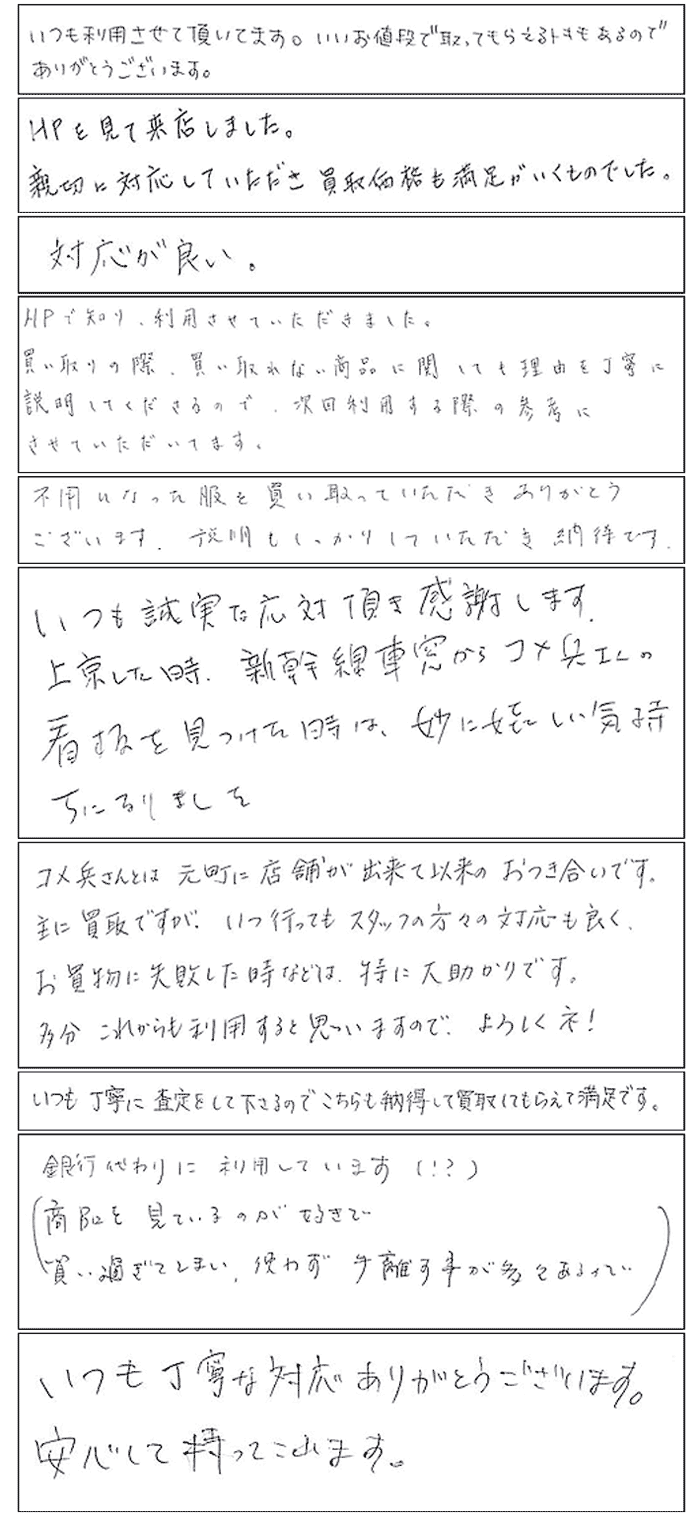 いつも利用させて頂いてます。いいお値段で取ってもらえるトキもあるので
ありがとうございます。
HPを見て来店しました。
親切に対応していただき買取価格も満足がいくものでした。
対応が良い。
HPで知り、利用させていただきました。
買い取りの際、買い取れない商品に関しても理由を丁寧に
説明してくださるので、次回利用する際の参考に
させていただいてます。
不用になった服を買い取っていただきありがとう
ございます。説明もしっかりしていただき納得です。
いつも誠実な応対頂き感謝します。
上京した時、新幹線車窓からコメ兵さんの
看板を見つけた時は、妙に嬉しい気持
ちになりました
コメ兵さんとは元町に店舗が出来て以来のおつき合いです。
主に買取ですが、いつ行ってもスタッフの方々の対応も良く、
お買物に失敗した時などは、特に大助かりです。
多分これからも利用すると思いますので、よろしくネ!
いつも丁寧に査定をして下さるのでこちらも納得して買取してもらえて満足です。
銀行代わりに利用しています(!?)
(商品を見ているのが好きで
買い過ぎてしまい、使わず手離す事が多々あるので)
いつも丁寧な対応ありがとうございます。
安心して持ってこれます。